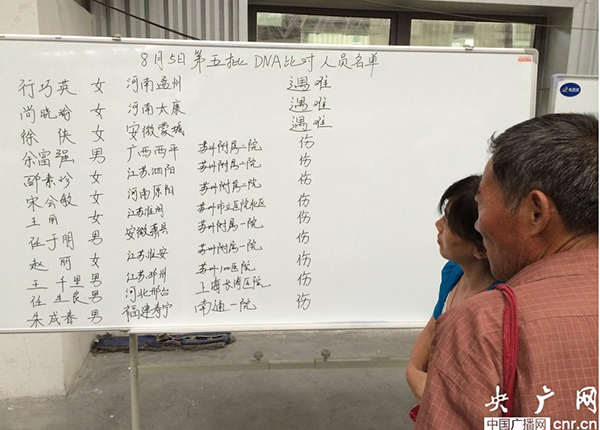 8月5日第五批 DNA比对人员名单
行巧英 女 河南孟州 遇难
尚晓瑜 女 河南太康 遇难
徐侠 女 安徽蒙城 遇难
余富强 男 广西西平 苏州附属二院 伤
邵素珍 女 江苏泗阳 苏州附属二院 伤
宋会敏 女 河南原阳 苏州附属二院 伤
王丽 女 江苏淮州 苏州市立医院北区 伤
任于明 男 安徽萧县 苏州附属一院 伤
赵丽 女 江苏淮安 苏州附属一院 伤
王千里 男 江苏邳州 苏州100医院 伤
任 良 男 河北邢台 上海长海医院 伤
朱成春 男 福建寿宁 南通一院 伤
央广网
中国广播网 cnr.cn